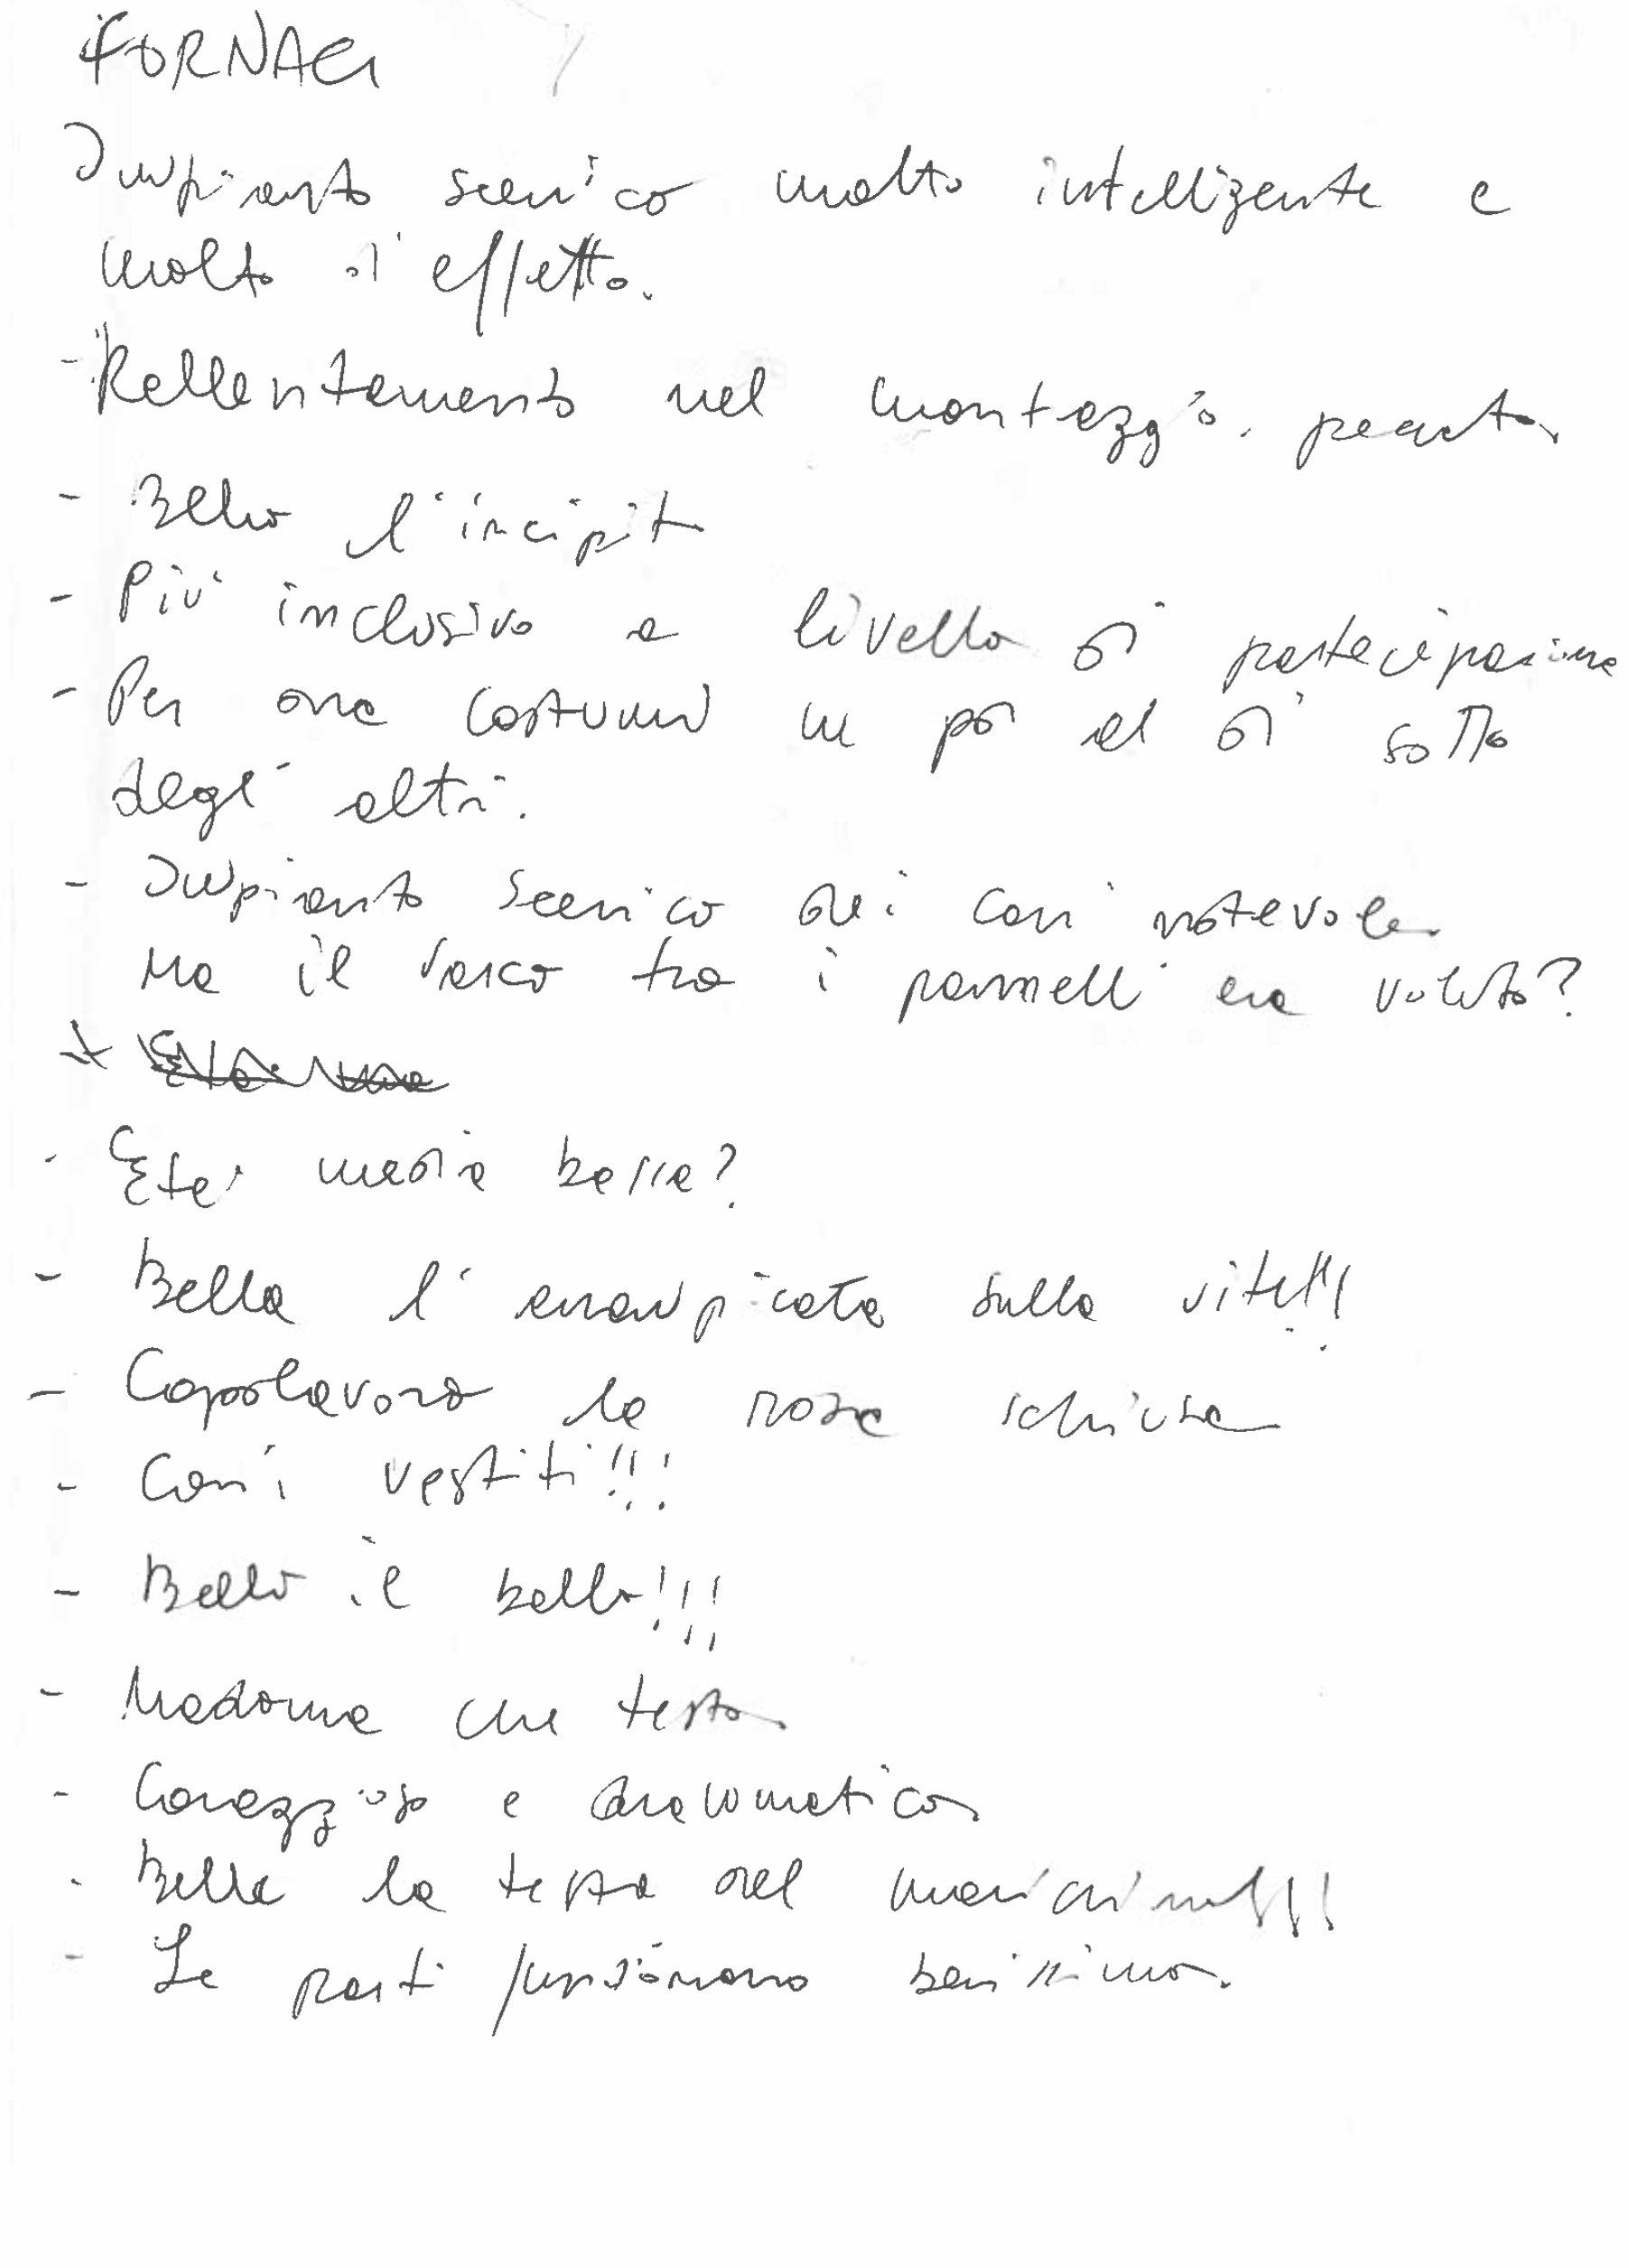 FORNACI
Impianto scenico molto intelligente e
molto d'effetto.
- Rallentamento nel montaggio. peccato.
- Bello l'incipit
- Più inclusivo a livello di partecipazione
- Per ora costumi un po' al di sotto
degli altri.
- Impianto scenico dei cori notevole.
Ma il varco tra i pannelli era voluto?
- Età media bassa?
- Bella l'arrampicata sulla vite!!!
- Capolavoro la rosa schiusa
- Cori vestiti!!!
- Bello il ballo!!!
- Madonna che testo.
- Coraggioso e drammatico.
- Bella la testa del
- Le parti funzionano benissimo.